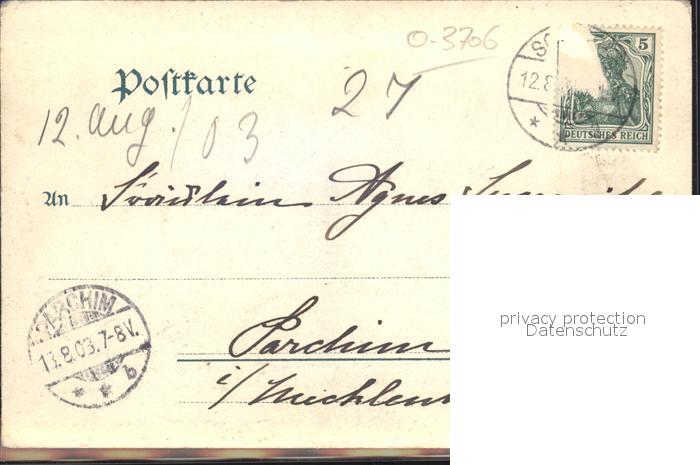 O-3706
Postkarte
27
12. Aug. / 03
SC
12.8
5
DEUTSCHES REICH
An Fräulein Agnes
PARCHIM
13.8.03.7-8V.
* * b
Parchim
i/ Mecklen
privacy protection
Datenschutz